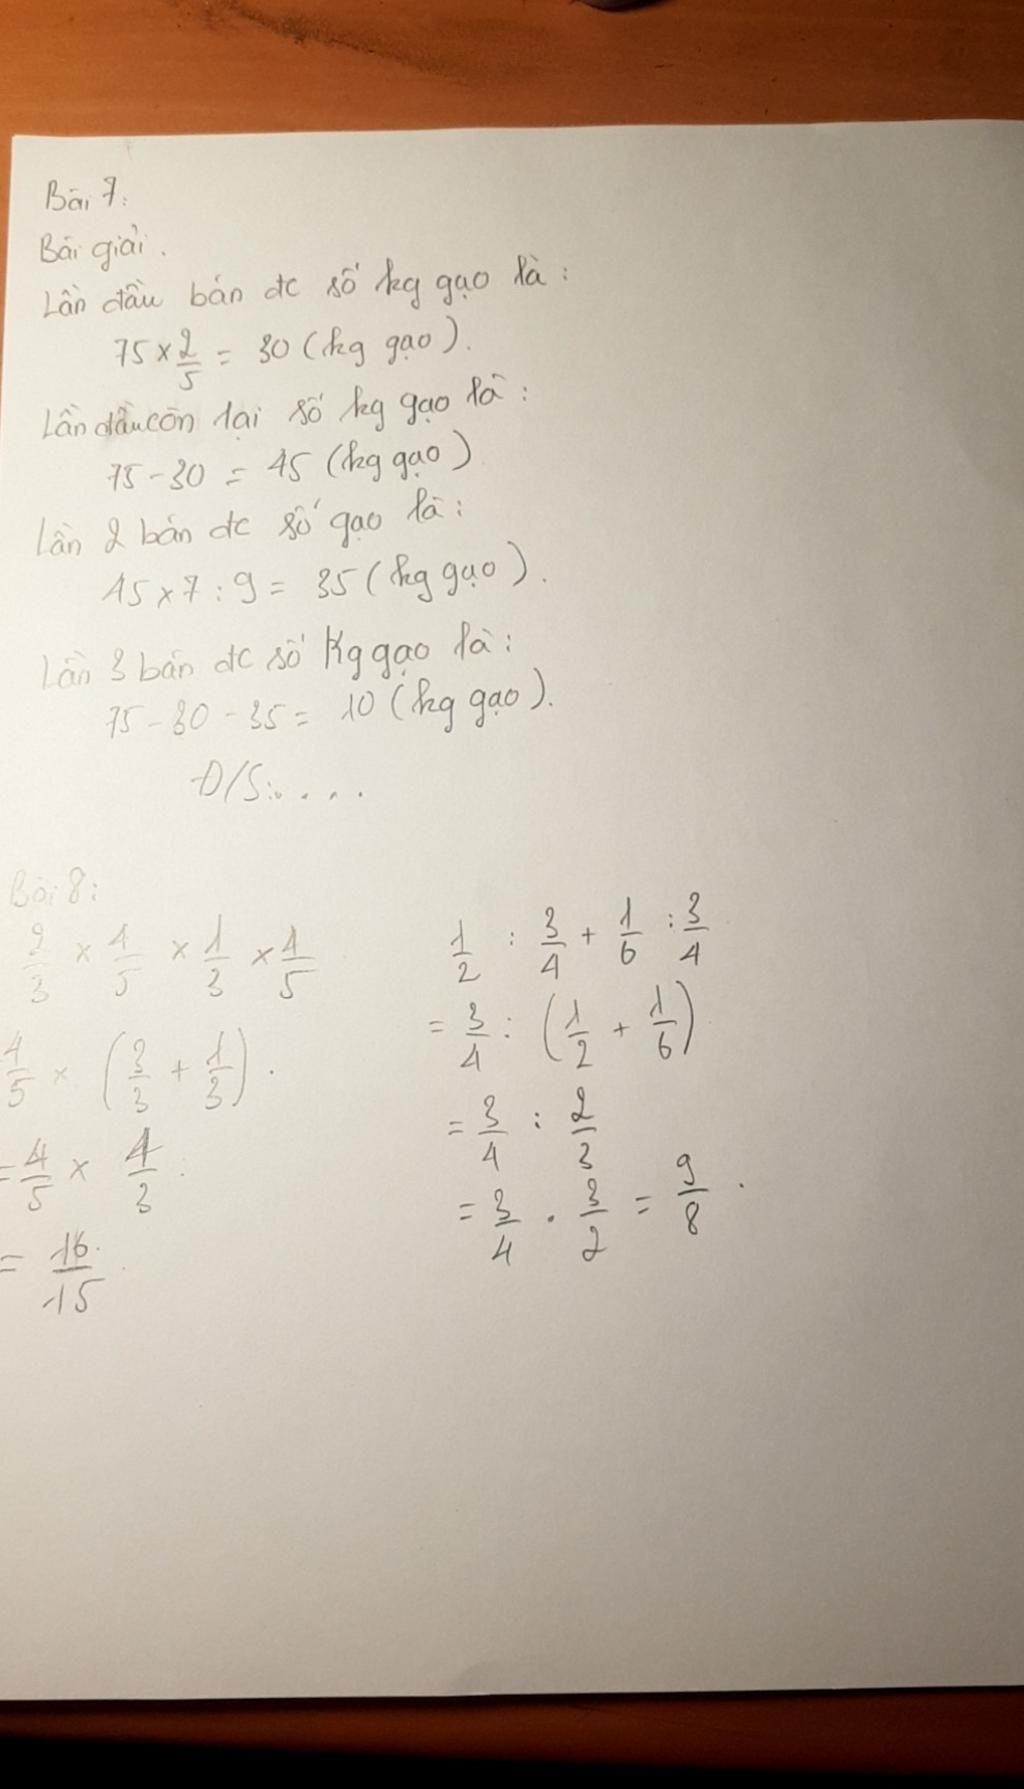 Bài 7:
Bài giải.
Lần đầu bán đc số kg gạo là:
75 × 2/5 = 30 (kg gạo).
Lần đầu còn lại số kg gạo là:
75 - 30 = 45 (kg gạo)
Lần 2 bán đc số gạo là:
45 × 7 : 9 = 35 (kg gạo).
Lần 3 bán đc số Kg gạo là:
75 - 30 - 35 = 10 (kg gạo).
Đ/S:....
Bài 8:
2/3 × 4/5 × 1/3 × 4/5
4/5 × (3/3 + 1/3).
= 4/5 × 4/3.
= 16/15
1/2 : 3/4 + 1/6 : 3/4
= 3/4 : (1/2 + 1/6)
= 3/4 : 2/3
= 3/4 . 3/2 = 9/8.